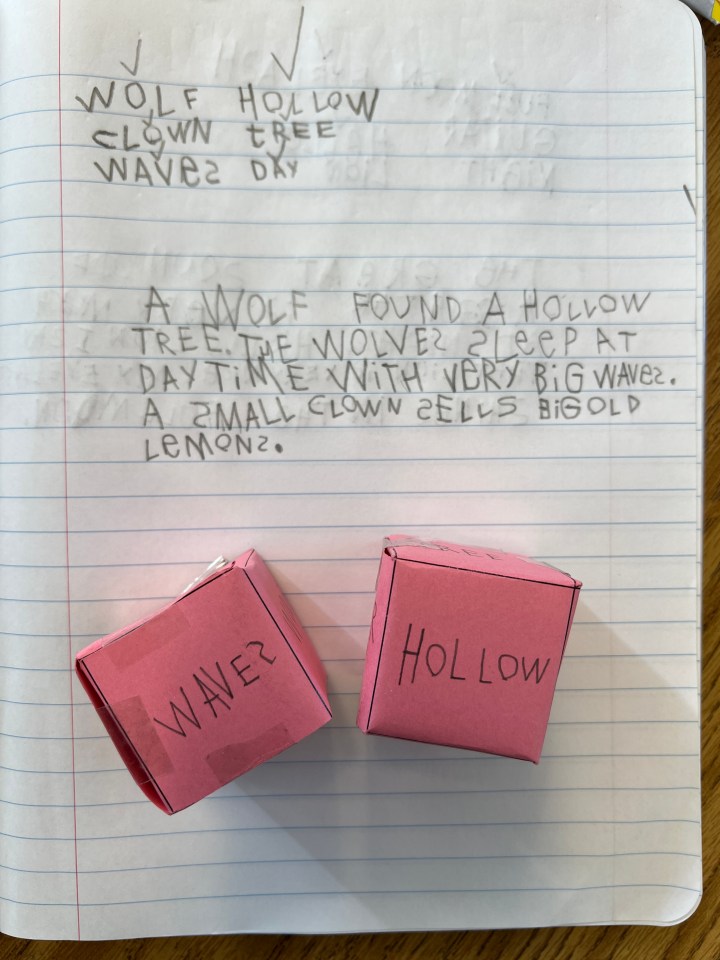 WOLF HOLLOW
CLOWN tREE
WAVes DAY
A WOLF FOUND A HOLLOW
TREE. THE WOLVES SLeeP AT
DAYTiME WiTH VERY BiG WAVes.
A SMALL CLOWN SELLS BiG OLD
LeMONS.
TREE
WAVES
HOLLOW